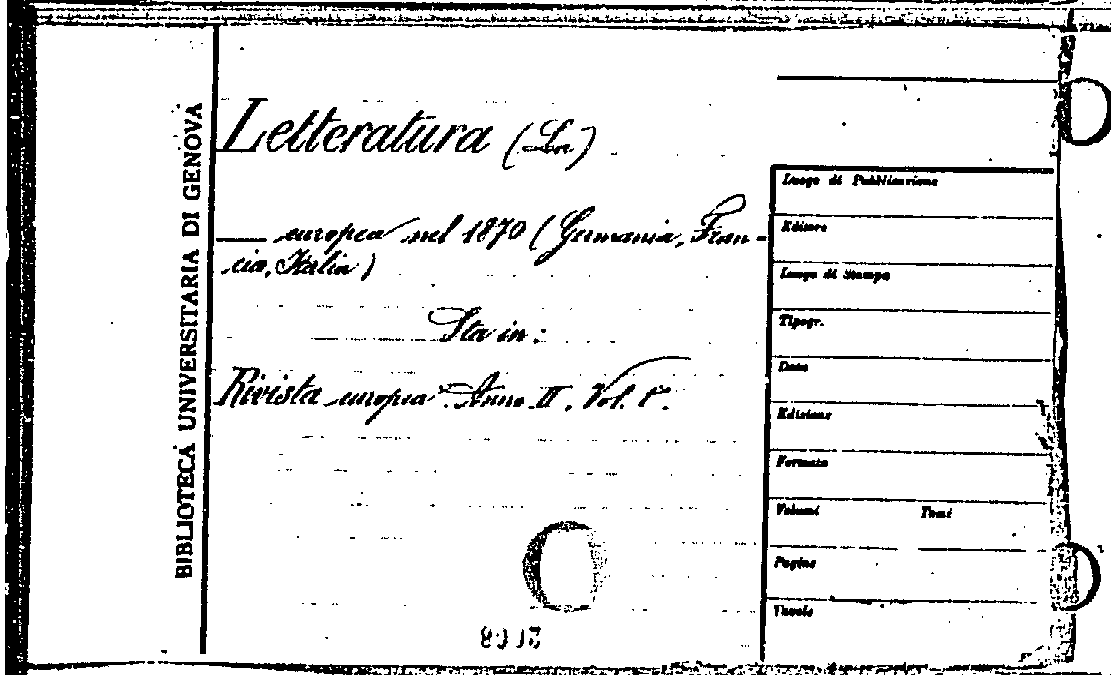 BIBLIOTECA UNIVERSITARIA DI GENOVA
Letteratura (La)
— europea nel 1870 (Germania, Fran-
cia, Italia)
Sta in:
Rivista europea. Anno II. Vol. 1°.
Luogo di Pubblicazione
Editore
Luogo di Stampa
Tipogr.
Data
Edizione
Formato
Volumi Tomi
Pagine
Tavole